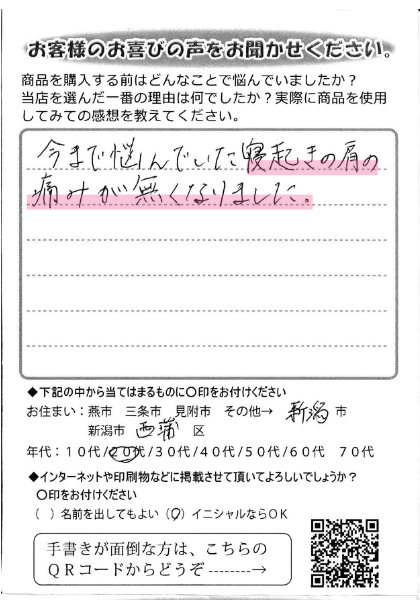 お客様のお喜びの声をお聞かせください。
商品を購入する前はどんなことで悩んでいましたか？
当店を選んだ一番の理由は何でしたか？実際に商品を使用
してみての感想を教えてください。
今まで悩んでいた寝起きの肩の
痛みが無くなりました。
◆下記の中から当てはまるものに〇印をお付けください
お住まい：燕市　三条市　見附市　その他→　新潟　市
新潟市　西蒲　区
年代：１０代/２０代/３０代/４０代/５０代/６０代　７０代
◆インターネットや印刷物などに掲載させて頂いてよろしいでしょうか？
〇印をお付けください
（　）名前を出してもよい（〇）イニシャルならＯＫ
手書きが面倒な方は、こちらの
ＱＲコードからどうぞ--------→